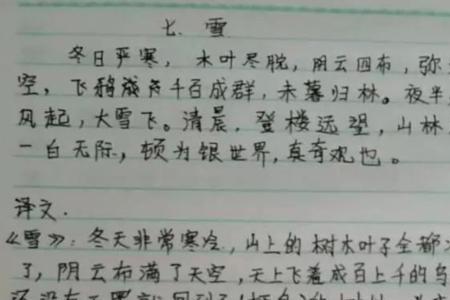 七、雪
冬日严寒，木叶尽脱，阴云四布，弥
空，飞鸦千百成群，未暮归林。夜半
风起，大雪飞。清晨，登楼远望，山林
一白无际，顿为银世界，真奇观也。
译文.
《雪》：冬天非常寒冷，山上的树木叶子全都
了，阴云布满了天空，天上飞着成百上千的乌